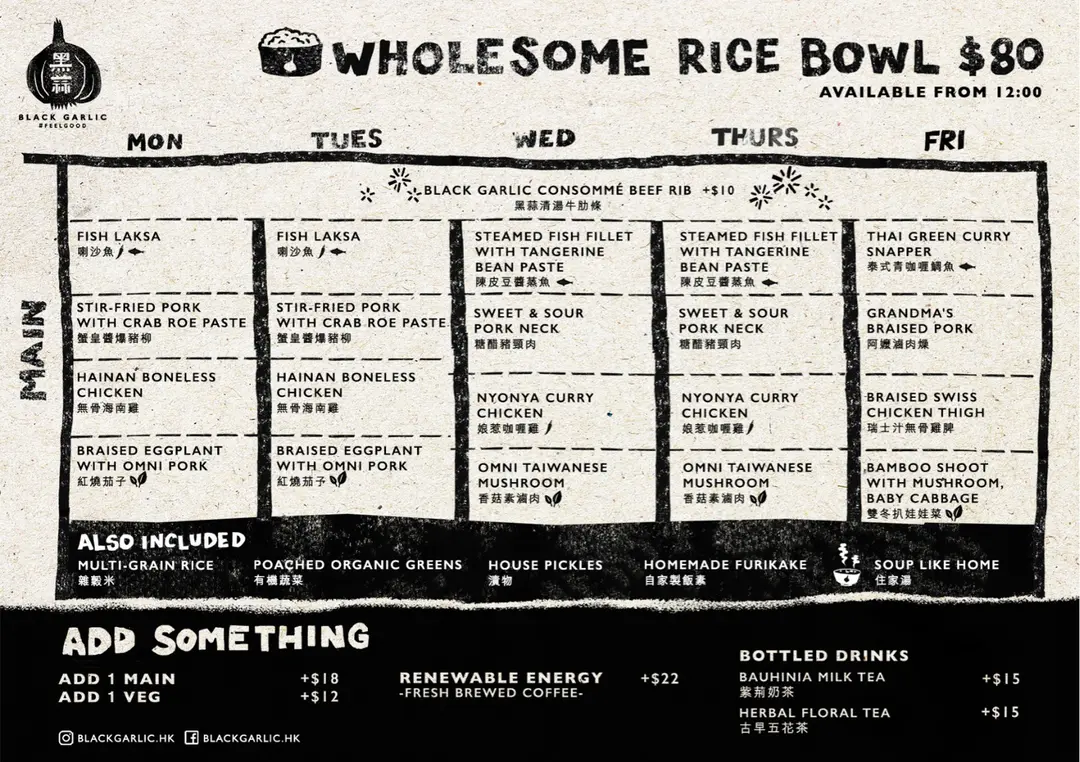 黑蒜
BLACK GARLIC
#FEELGOOD
WHOLESOME RICE BOWL $80
AVAILABLE FROM 12:00
MON
TUES
WED
THURS
FRI
BLACK GARLIC CONSOMMÉ BEEF RIB +$10
黑蒜清湯牛肋條
MAIN
FISH LAKSA
喇沙魚
STIR-FRIED PORK
WITH CRAB ROE PASTE
蟹皇醬爆豬柳
HAINAN BONELESS
CHICKEN
無骨海南雞
BRAISED EGGPLANT
WITH OMNI PORK
紅燒茄子
FISH LAKSA
喇沙魚
STIR-FRIED PORK
WITH CRAB ROE PASTE
蟹皇醬爆豬柳
HAINAN BONELESS
CHICKEN
無骨海南雞
BRAISED EGGPLANT
WITH OMNI PORK
紅燒茄子
STEAMED FISH FILLET
WITH TANGERINE
BEAN PASTE
陳皮豆醬蒸魚
SWEET & SOUR
PORK NECK
糖醋豬頸肉
NYONYA CURRY
CHICKEN
娘惹咖喱雞
OMNI TAIWANESE
MUSHROOM
香菇素滷肉
STEAMED FISH FILLET
WITH TANGERINE
BEAN PASTE
陳皮豆醬蒸魚
SWEET & SOUR
PORK NECK
糖醋豬頸肉
NYONYA CURRY
CHICKEN
娘惹咖喱雞
OMNI TAIWANESE
MUSHROOM
香菇素滷肉
THAI GREEN CURRY
SNAPPER
泰式青咖喱鯛魚
GRANDMA'S
BRAISED PORK
阿嬤滷肉燥
BRAISED SWISS
CHICKEN THIGH
瑞士汁無骨雞脾
BAMBOO SHOOT
WITH MUSHROOM,
BABY CABBAGE
雙冬扒娃娃菜
ALSO INCLUDED
MULTI-GRAIN RICE
雜穀米
POACHED ORGANIC GREENS
有機蔬菜
HOUSE PICKLES
漬物
HOMEMADE FURIKAKE
自家製飯素
SOUP LIKE HOME
住家湯
ADD SOMETHING
ADD 1 MAIN +$18
ADD 1 VEG +$12
RENEWABLE ENERGY +$22
-FRESH BREWED COFFEE-
BOTTLED DRINKS
BAUHINIA MILK TEA +$15
紫荊奶茶
HERBAL FLORAL TEA +$15
古早五花茶
BLACKGARLIC.HK BLACKGARLIC.HK